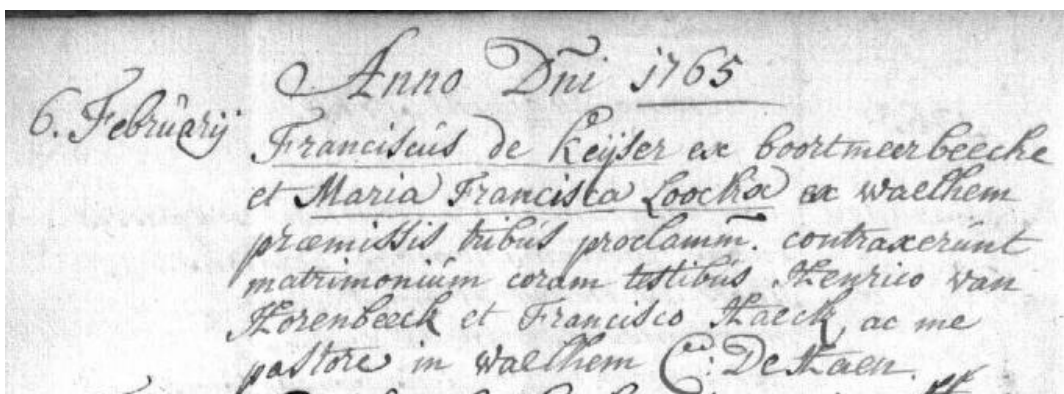 Anno Dñi 1765
6. Februarij
Franciscus de Keijser ex boortmeerbeecke
et Maria Francisca Loockx ex waelhem
præmissis tribus proclamm̄. contraxerunt
matrimonium coram testibus Henrico van
Horenbeeck et Francisco Haeck, ac me
pastore in waelhem C: De Haen.